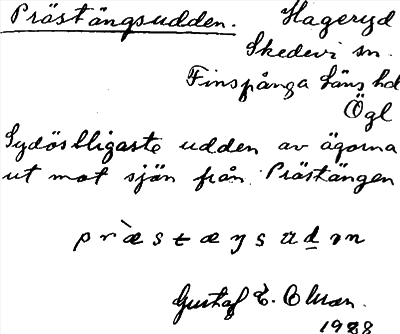 Prästängsudden. Hageryd
Skedevi sn.
Finspånga läns hd
Ögl
Sydöstligaste udden av ägorna
ut mot sjön från Prästängen
præstæŋsudən
Gustaf E.
1928